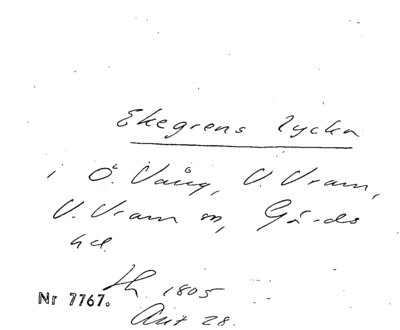 Ekegrens lycka
i Ö. Vång, V. Vram,
V. Vram sn, Gärds
hd.
1805
Nr 7767.
Ant 28.